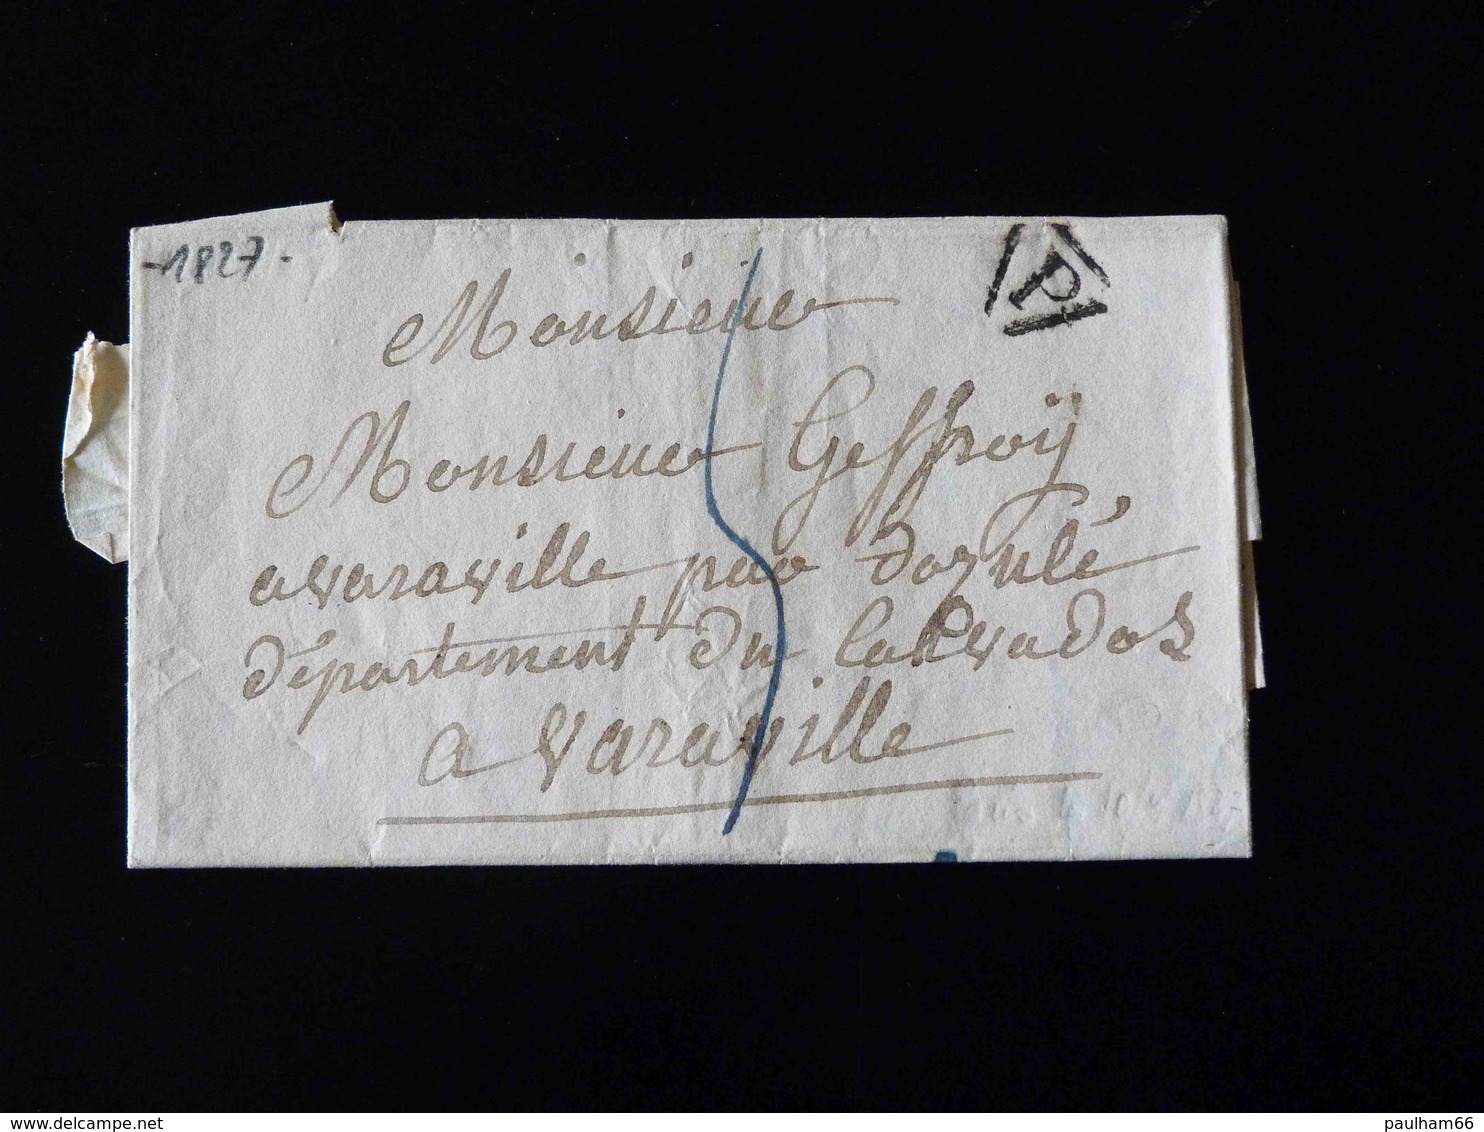 -1827-
P
Monsieur
Monsieur Geffroÿ
a varaville par dozulé
département du Calvados
a varaville
paulham66